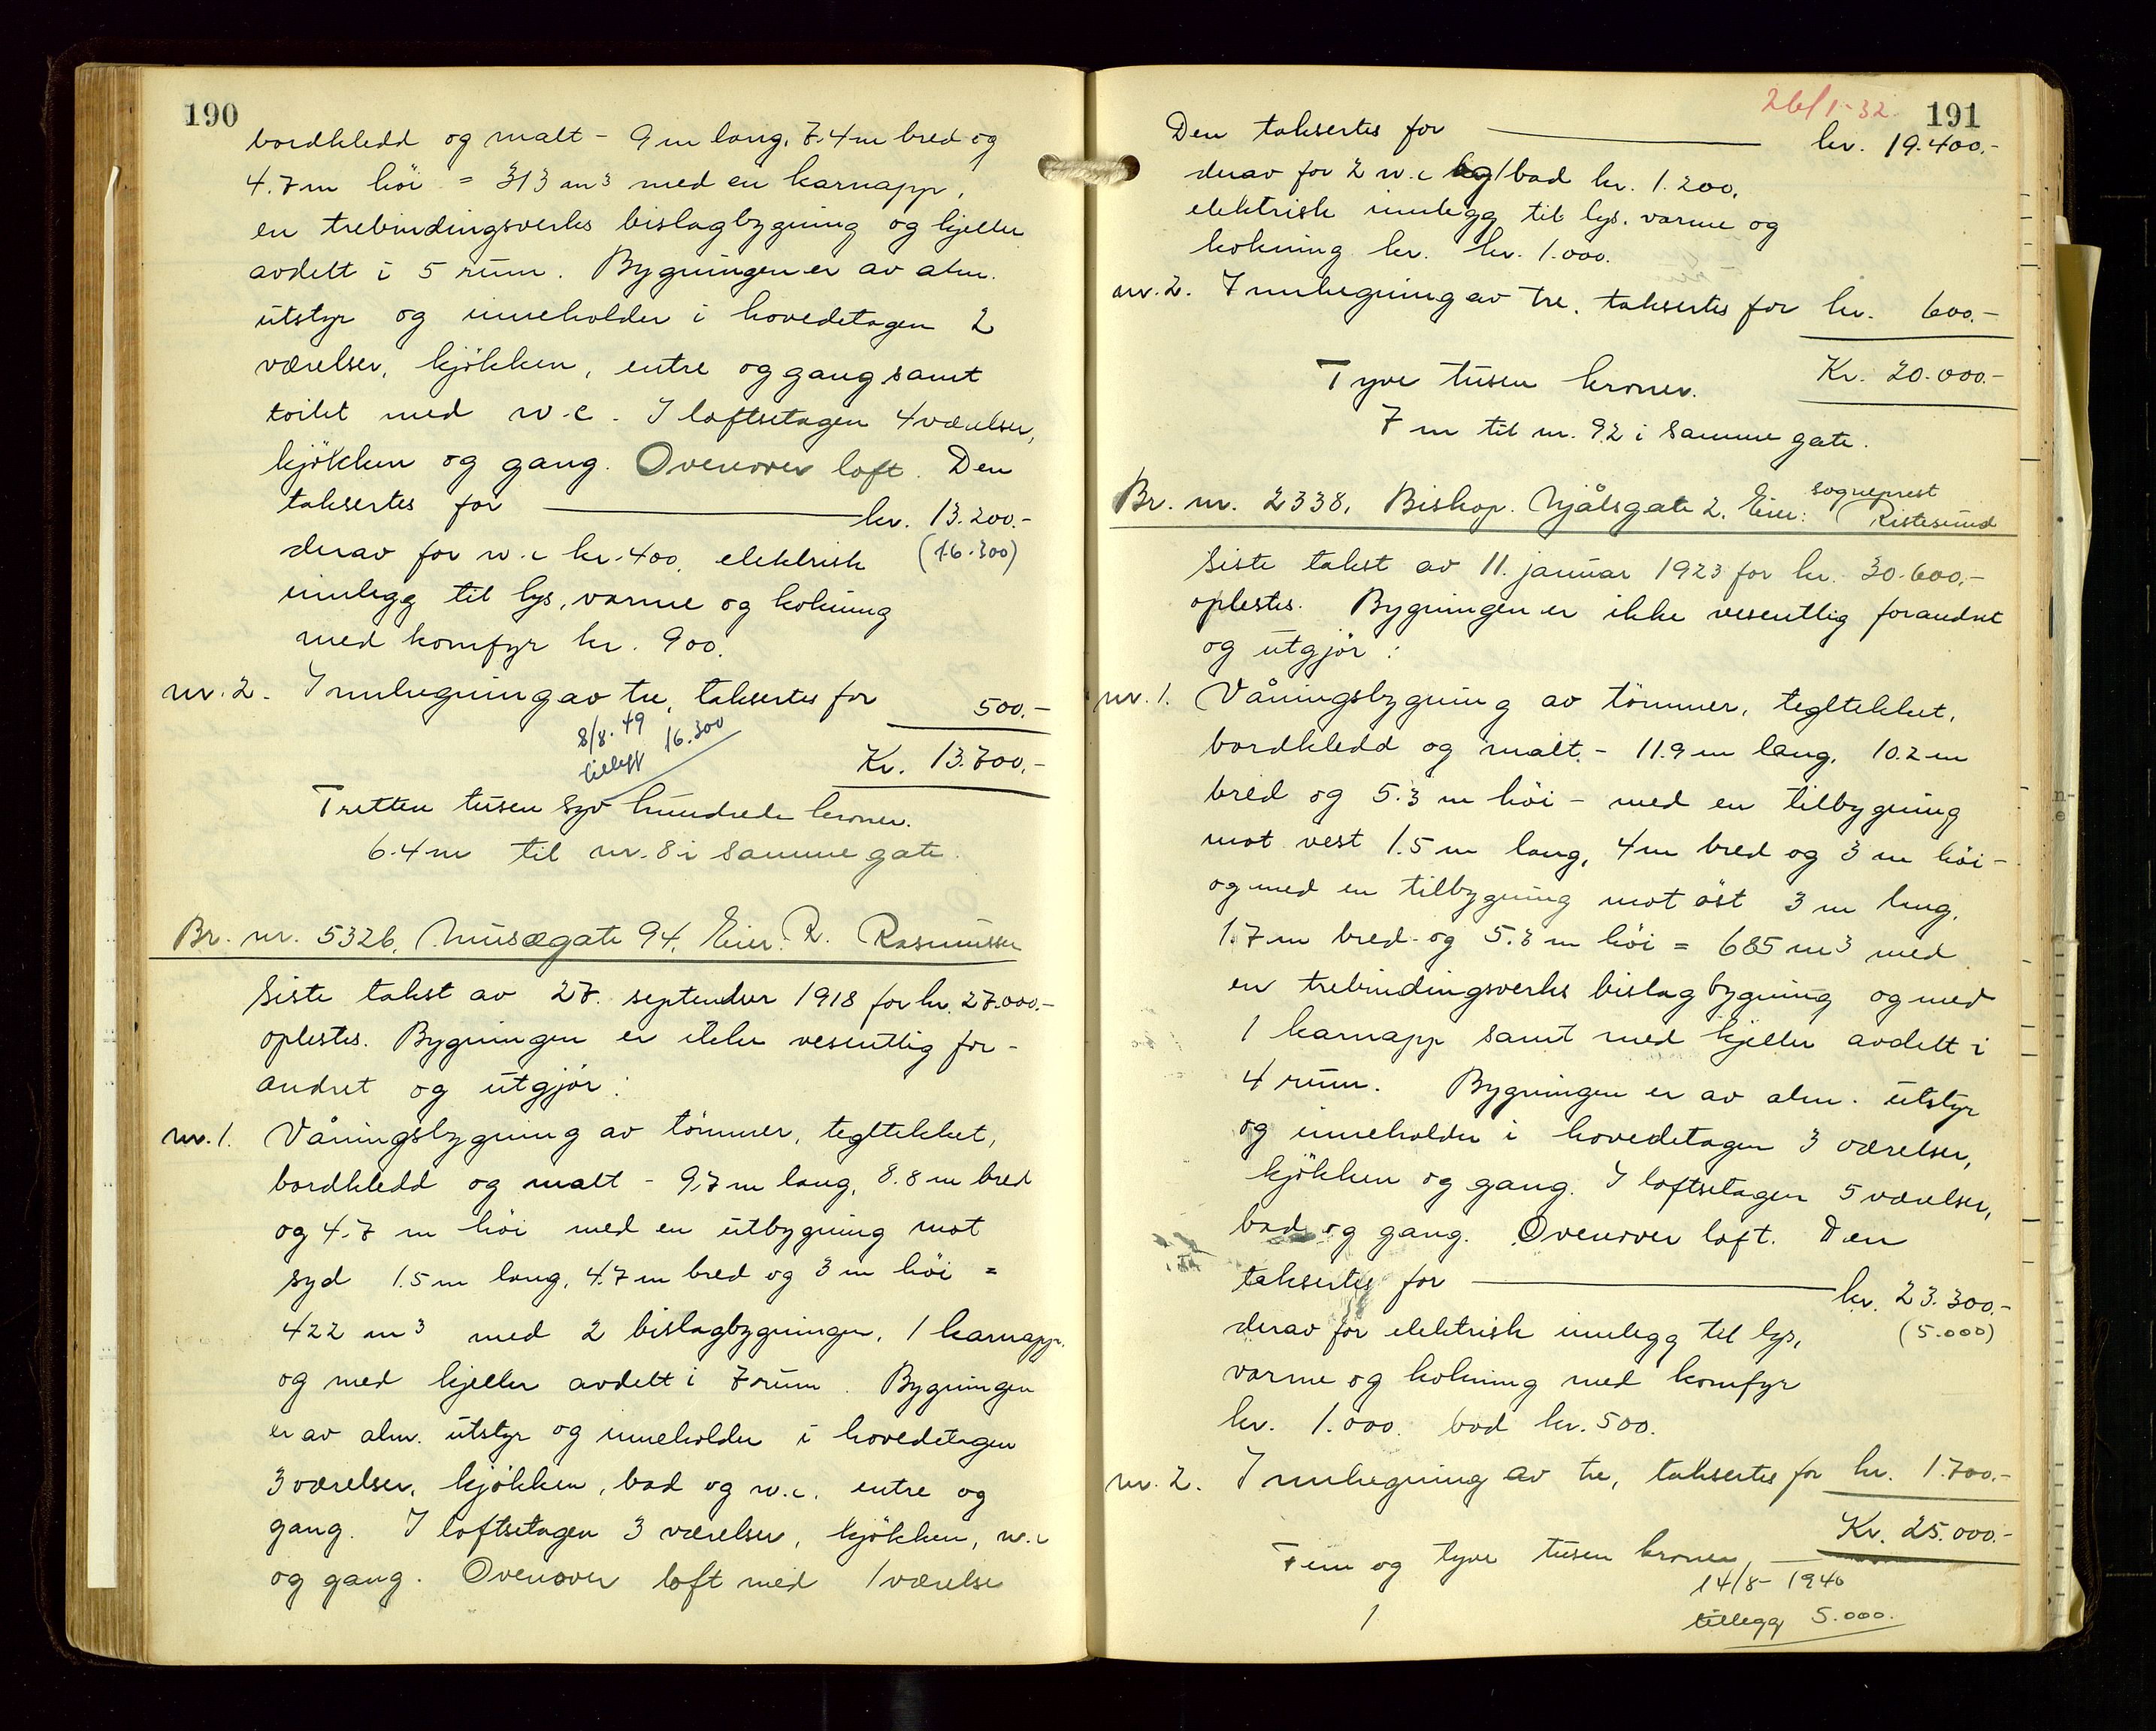 190
bordkledd og malt - 9 m lang, 7.4 m bred og
4.7 m høi = 313 m³ med en karnapp,
en trebindingsverks bislagbygning og kjeller
avdelt i 5 rum. Bygningen er av alm.
utstyr og inneholder i hovedetagen 2
værelser, kjökken, entre og gang samt
toilet med w.c. I loftsetagen 4 værelser,
kjökken og gang. Ovenover loft. Den
taksertes for kr. 13.200.-
derav for w.c kr. 400, elektrisk (16.300)
innlegg til lys, varme og kokning
med komfyr kr. 900.
nr. 2. Innhegning av tre, taksertes for 500.-
8/8. 49
tillegg 16.300
Kr. 13.700.-
Tretten tusen syv hundrede kroner.
6.4 m til nr. 8 i samme gate.
Br. nr. 5326, Musægate 94. Eier: R. Rasmussen
Siste takst av 27. september 1918 for kr. 27.000.-
oplestes. Bygningen er ikke vesentlig for-
andret og utgjör:
nr. 1. Våningsbygning av tömmer, tegltekket,
bordkledd og malt - 9,7 m lang, 8.8 m bred
og 4.7 m höi med en utbygning mot
syd 1.5 m lang, 4.7 m bred og 3 m höi =
422 m³ med 2 bislagbygninger, 1 karnapp,
og med kjeller avdelt i 7 rum. Bygningen
er av alm. utstyr og inneholder i hovedetagen
3 værelser, kjökken, bad og w.c. entre og
gang. I loftsetagen 3 værelser, kjökken, w.c
og gang. Ovenover loft med 1 værelse
26/1-32. 191
Den taksertes for kr. 19.400.-
derav for 2 w.c og 1 bad kr. 1.200,
elektrisk innlegg til lys, varme og
kokning kr. kr. 1.000.
nr. 2. Innhegning av tre, taksertes for kr. 600.-
Kr. 20.000.-
Tyve tusen kroner.
7 m til nr. 92 i samme gate.
Br. nr. 2338, Biskop Njålsgate 2. Eier: sogneprest
Ristesund
Siste takst av 11. januar 1923 for kr. 30.600.-
oplestes. Bygningen er ikke vesentlig forandret
og utgjör:
nr. 1. Våningsbygning av tömmer, tegltekket,
bordkledd og malt - 11.9 m lang, 10.2 m
bred og 5.3 m höi - med en tilbygning
mot vest 1.5 m lang, 4 m bred og 3 m höi -
og med en tilbygning mot öst 3 m lang,
1.7 m bred og 5.3 m höi = 685 m³ med
en trebindingsverks bislagbygning og med
1 karnapp samt med kjeller avdelt i
4 rum. Bygningen er av alm. utstyr
og inneholder i hovedetagen 3 værelser,
kjökken og gang. I loftsetagen 5 værelser,
bad og gang. Ovenover loft. Den
taksertes for kr. 23.300.-
derav for elektrisk innlegg til lys, (5.000)
varme og kokning med komfyr
kr. 1.000. bad kr. 500.
nr. 2. Innhegning av tre, taksertes for kr. 1.700.-
Kr. 25.000.-
Fem og tyve tusen kroner,
14/8- 1940
tillegg 5.000.
1